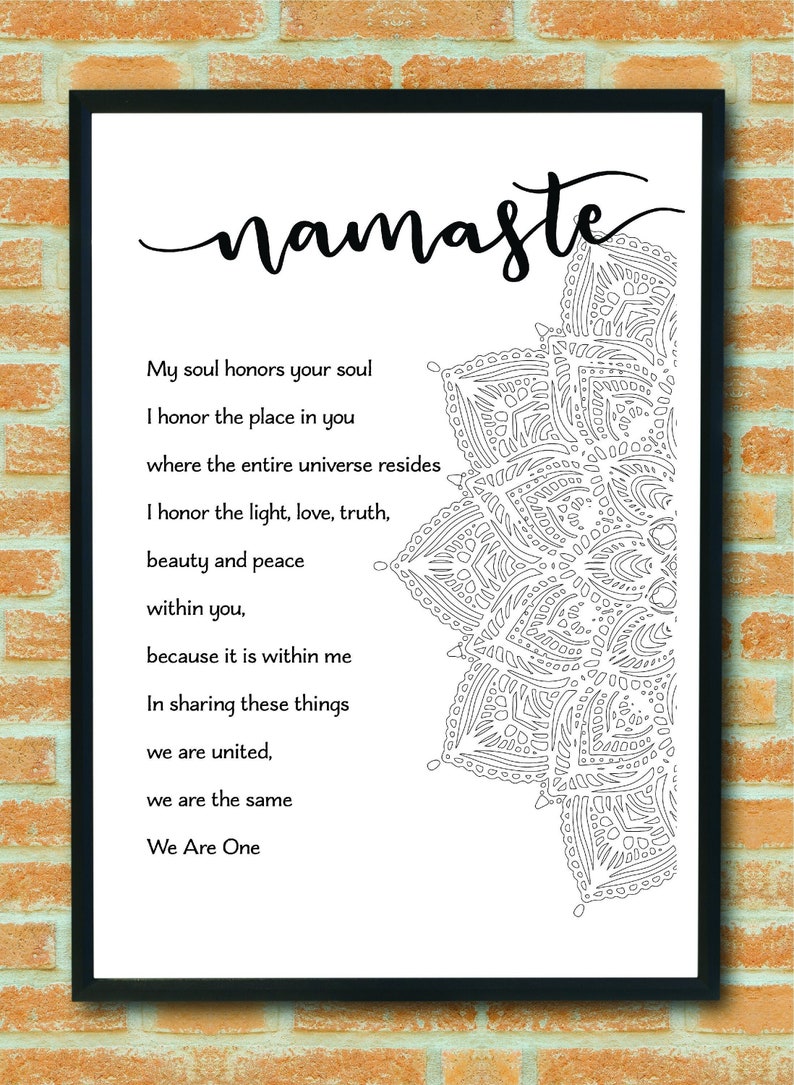 namaste
My soul honors your soul
I honor the place in you
where the entire universe resides
I honor the light, love, truth,
beauty and peace
within you,
because it is within me
In sharing these things
we are united,
we are the same
We Are One